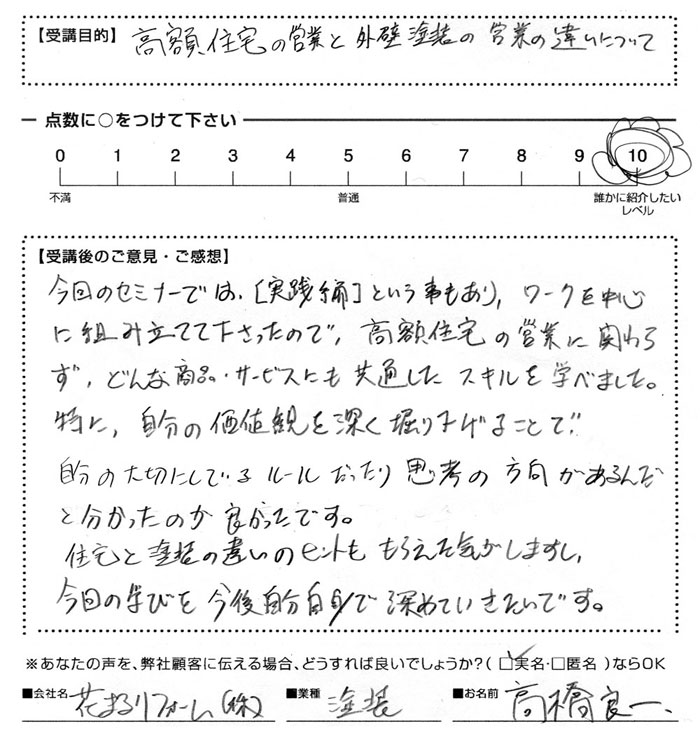 【受講目的】 高額住宅の営業と外壁塗装の営業の違いについて
点数に○をつけて下さい
0 1 2 3 4 5 6 7 8 9 10
不満 普通 誰かに紹介したい
レベル
【受講後のご意見・ご感想】
今回のセミナーでは、[実践編]という事もあり、ワークを中心
に組み立てて下さったので、高額住宅の営業に関わら
ず、どんな商品・サービスにも共通したスキルを学べました。
特に、自分の価値観を深く堀り下げることで
自分の大切にしているルールだったり思考の方向があるんだ
と分かったのが良かったです。
住宅と塗装の違いのヒントももらえた気がしますし、
今回の学びを今後自分自身で深めていきたいです。
※あなたの声を、弊社顧客に伝える場合、どうすれば良いでしょうか?( □実名・□匿名 )ならOK
■会社名 花まるリフォーム(株) ■業種 塗装 ■お名前 高橋良一